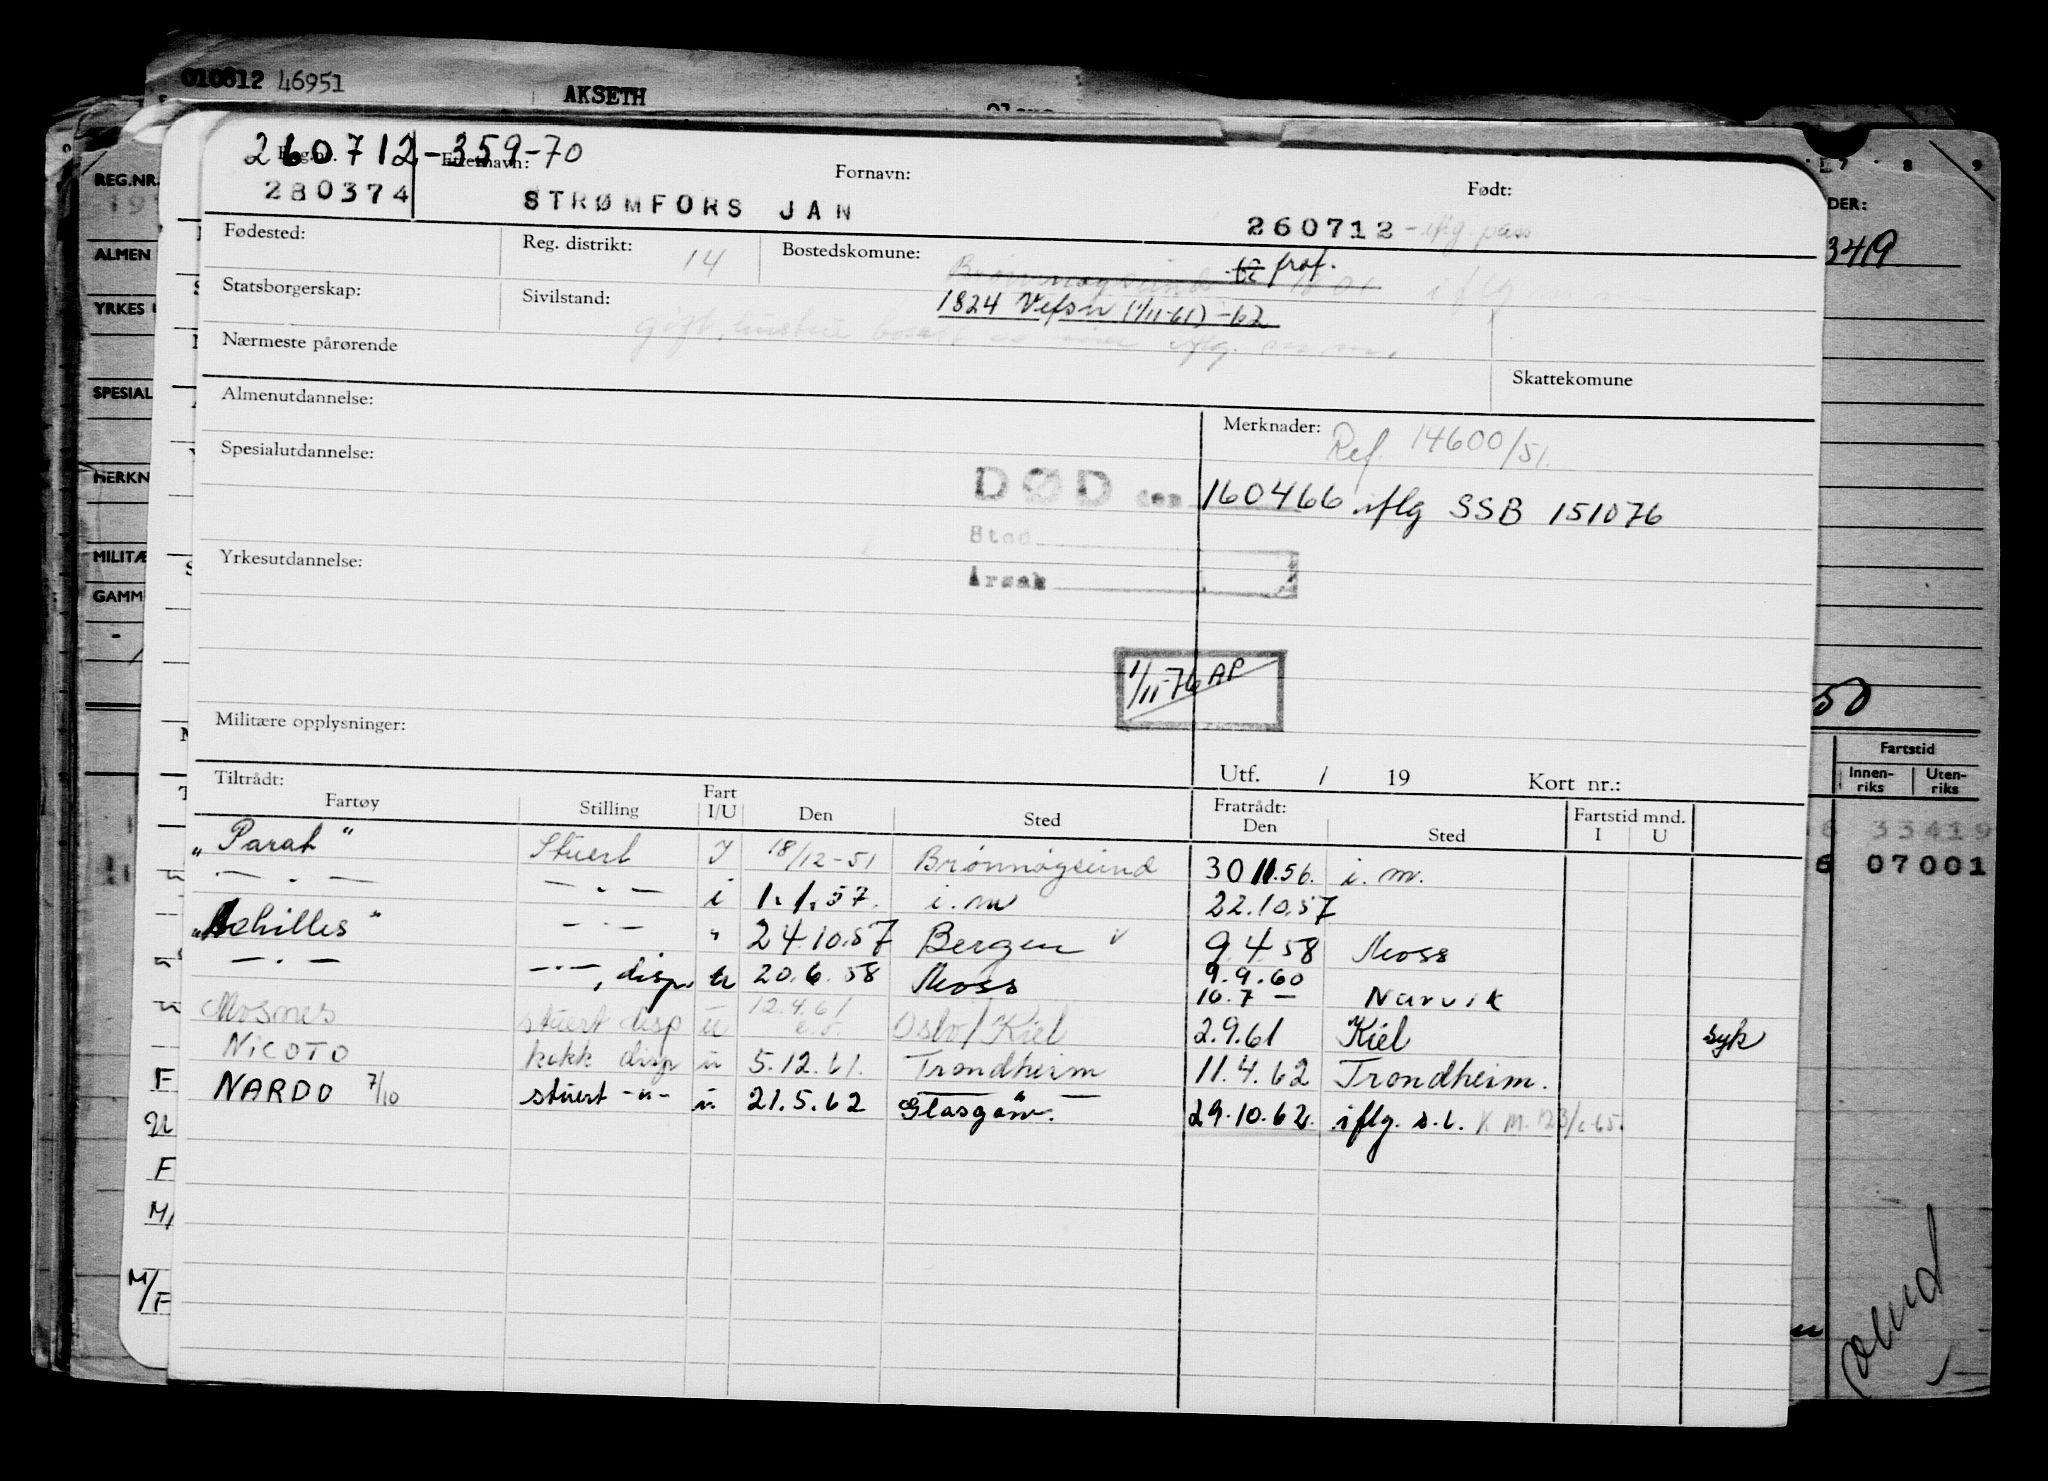 010812 46951
AKSETH
260712-359-70
Reg.nr. Etternavn: Fornavn: Født:
280374 STRØMFORS JAN 260712 - iflg. pass
Fødested: Reg. distrikt: 14 Bostedskomune: Brønnøysund
1824 Vefsn (1/11-61) -62
Statsborgerskap: Sivilstand: gift, iflg. m.m.
Nærmeste pårørende
Skattekomune
Almenutdannelse: Merknader: Ref. 14600/51.
Spesialutdannelse:
DØD den 160466 iflg SSB 151076
Sted
Årsak
Yrkesutdannelse:
1/11-76 AP
Militære opplysninger:
Tiltrådt: Utf. / 19 Kort nr.:
Fartøy Stilling Fart I/U Den Sted Fratrådt: Den Sted Fartstid mnd. I U
"Parat" Stuert I 18/12-51 Brønnøysund 30 11.56. i. m.
— " — — " — i 1.1.57. i. m 22.10.57
"Achilles" — " — " 24.10.57 Bergen 9.4.58 Moss
— " — — " —, disp. u 20.6.58 Moss 9.9.60
10.7 — Narvik
Mosnes stuert disp u 12.4.61 Oslo/Kiel 2.9.61 Kiel syk
NICOTO kokk disp u 5.12.61. Trondheim 11.4.62 Trondheim.
NARDO 7/10 stuert -"- u. 21.5.62 Glasgow. 29.10.62. iflg. s.l. K M. 123/c-65.
REG.NR.
ALMEN
YRKES
SPESIAL
MERKN
MILITÆ
GAMM
7 8 9
DER:
349
50
Fartstid
Innen-riks Uten-riks
33419
6 07001
F
U
F
M/
M/F